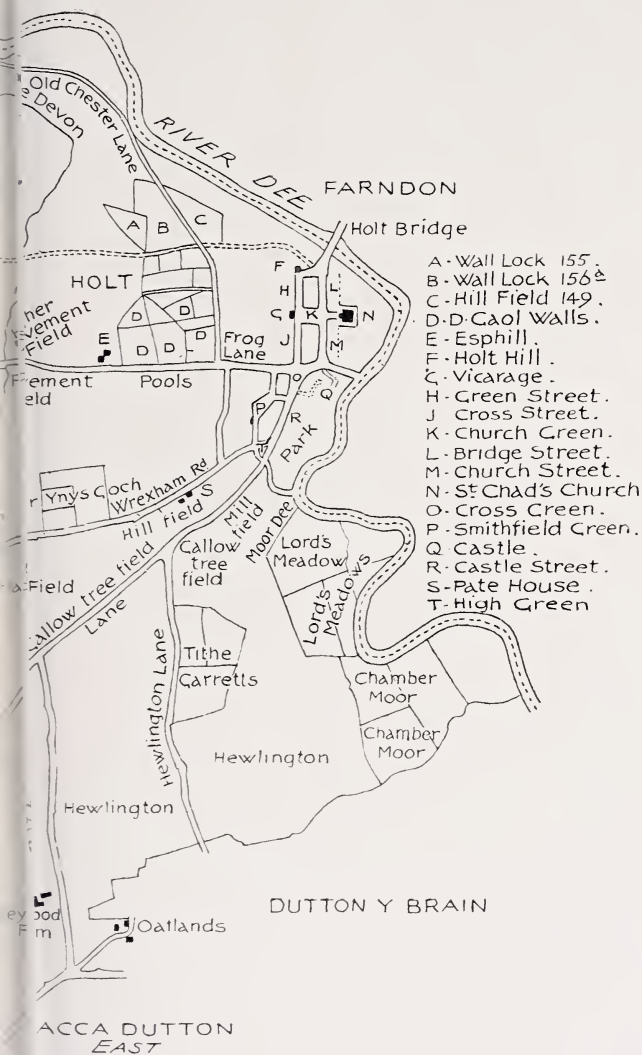 Old Chester Lane
Devon
RIVER DEE
FARNDON
Holt Bridge
A B C
HOLT
F
H
L
G
K
N
J
M
D D
D D D
E
Field
Frog
Lane
Pools
P
R
Q
Park
Ynys Goch
Wrexham Rd
Hill field S
Mill
field
Moor Dee
Gallow
tree
field
Lord's
Meadow
Lord's
Meadows
Field
Gallow tree field
Lane
Tithe
Garretts
Hewlington Lane
Chamber
Moor
Chamber
Moor
Hewlington
Hewlington
DUTTON Y BRAIN
Oatlands
ACCA DUTTON
EAST
A - Wall Lock 155.
B - Wall Lock 156a
C - Hill Field 149.
D-D-Gaol Walls.
E - Esphill.
F - Holt Hill.
G - Vicarage.
H - Green Street.
J Cross Street.
K - Church Green.
L - Bridge Street.
M - Church Street.
N - St Chad's Church
O - Cross Green.
P - Smithfield Green.
Q - Castle.
R - Castle Street.
S - Pate House.
T - High Green